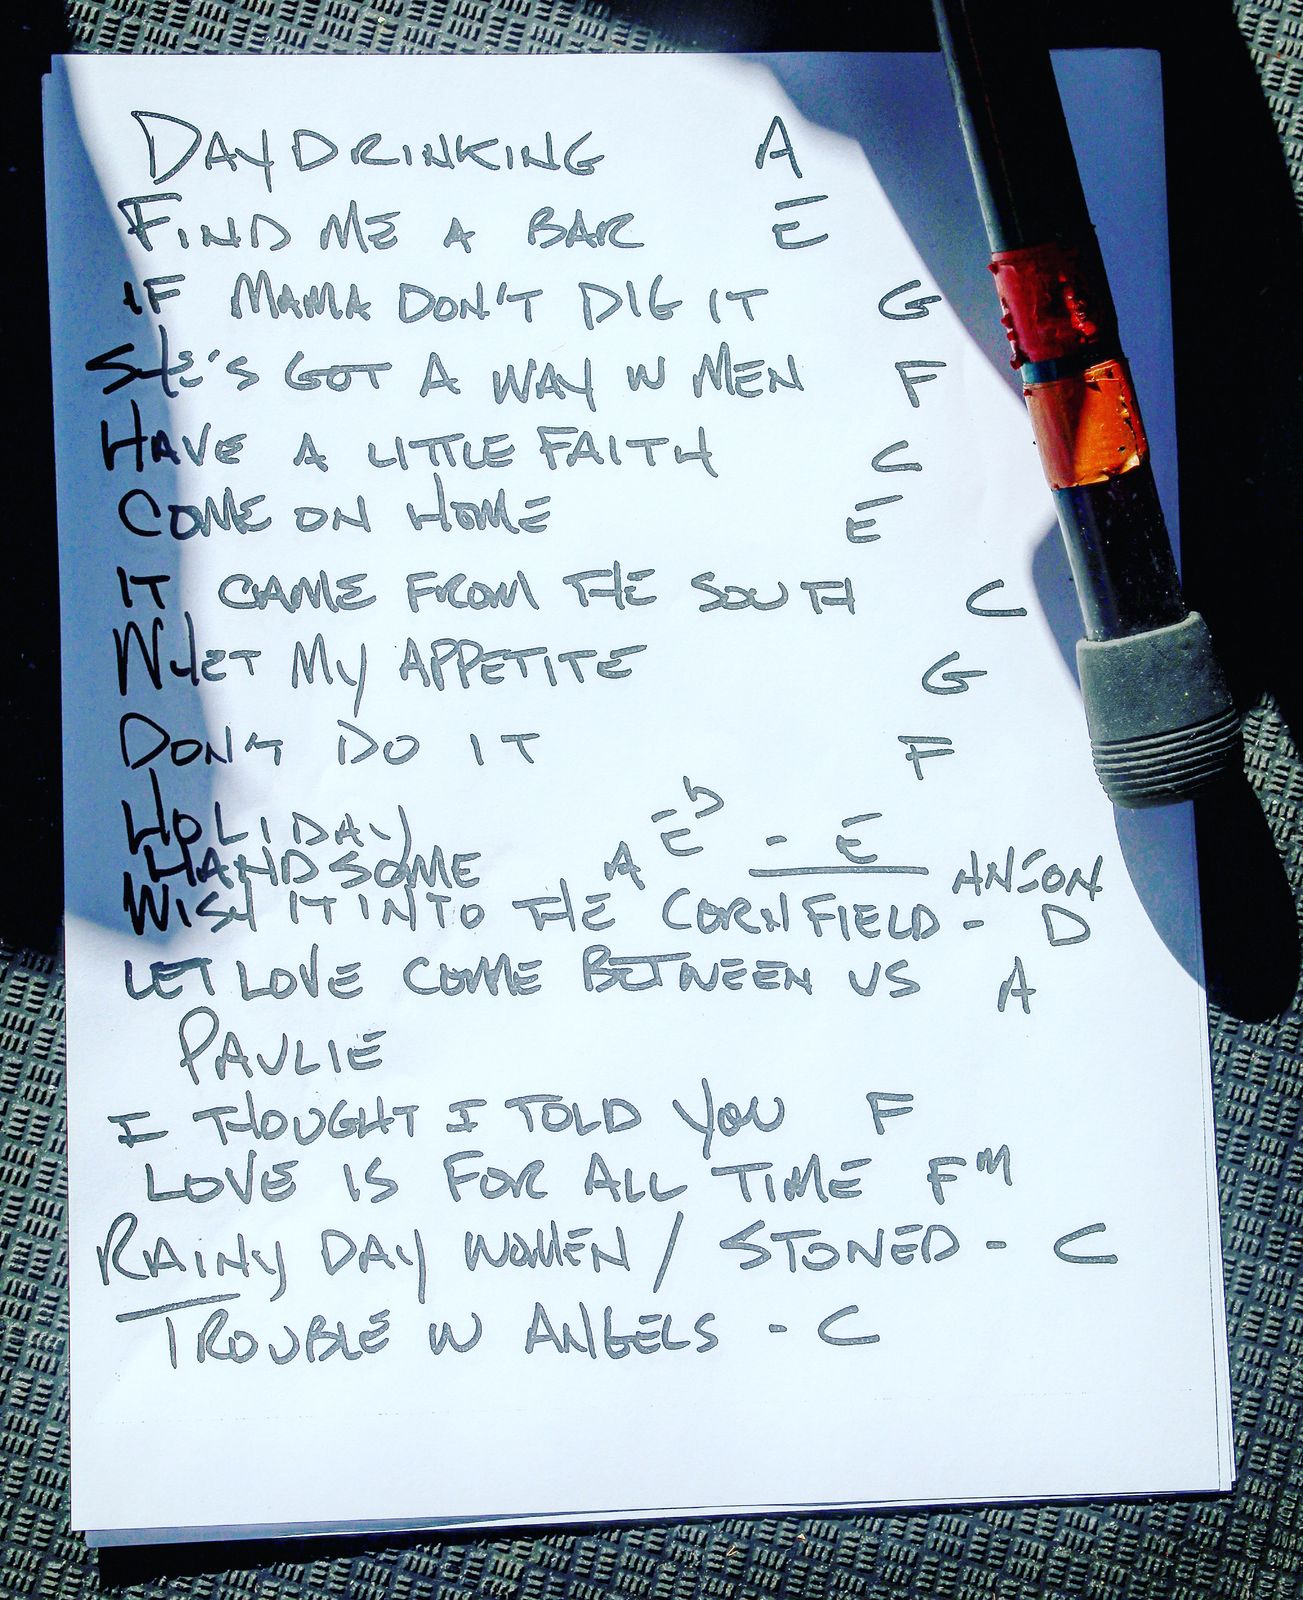 DAY DRINKING A
FIND ME A BAR E
IF MAMA DON'T DIG IT G
SHE'S GOT A WAY W MEN F
HAVE A LITTLE FAITH C
COME ON HOME E
IT CAME FROM THE SOUTH C
WHET MY APPETITE G
DON'T DO IT F
HOLIDAY Eb - E
HANDSOME A ANSON
WISH IT INTO THE CORNFIELD - D
LET LOVE COME BETWEEN US A
PAULIE
I THOUGHT I TOLD YOU F
LOVE IS FOR ALL TIME FM
RAINY DAY WOMEN / STONED - C
TROUBLE W ANGELS - C